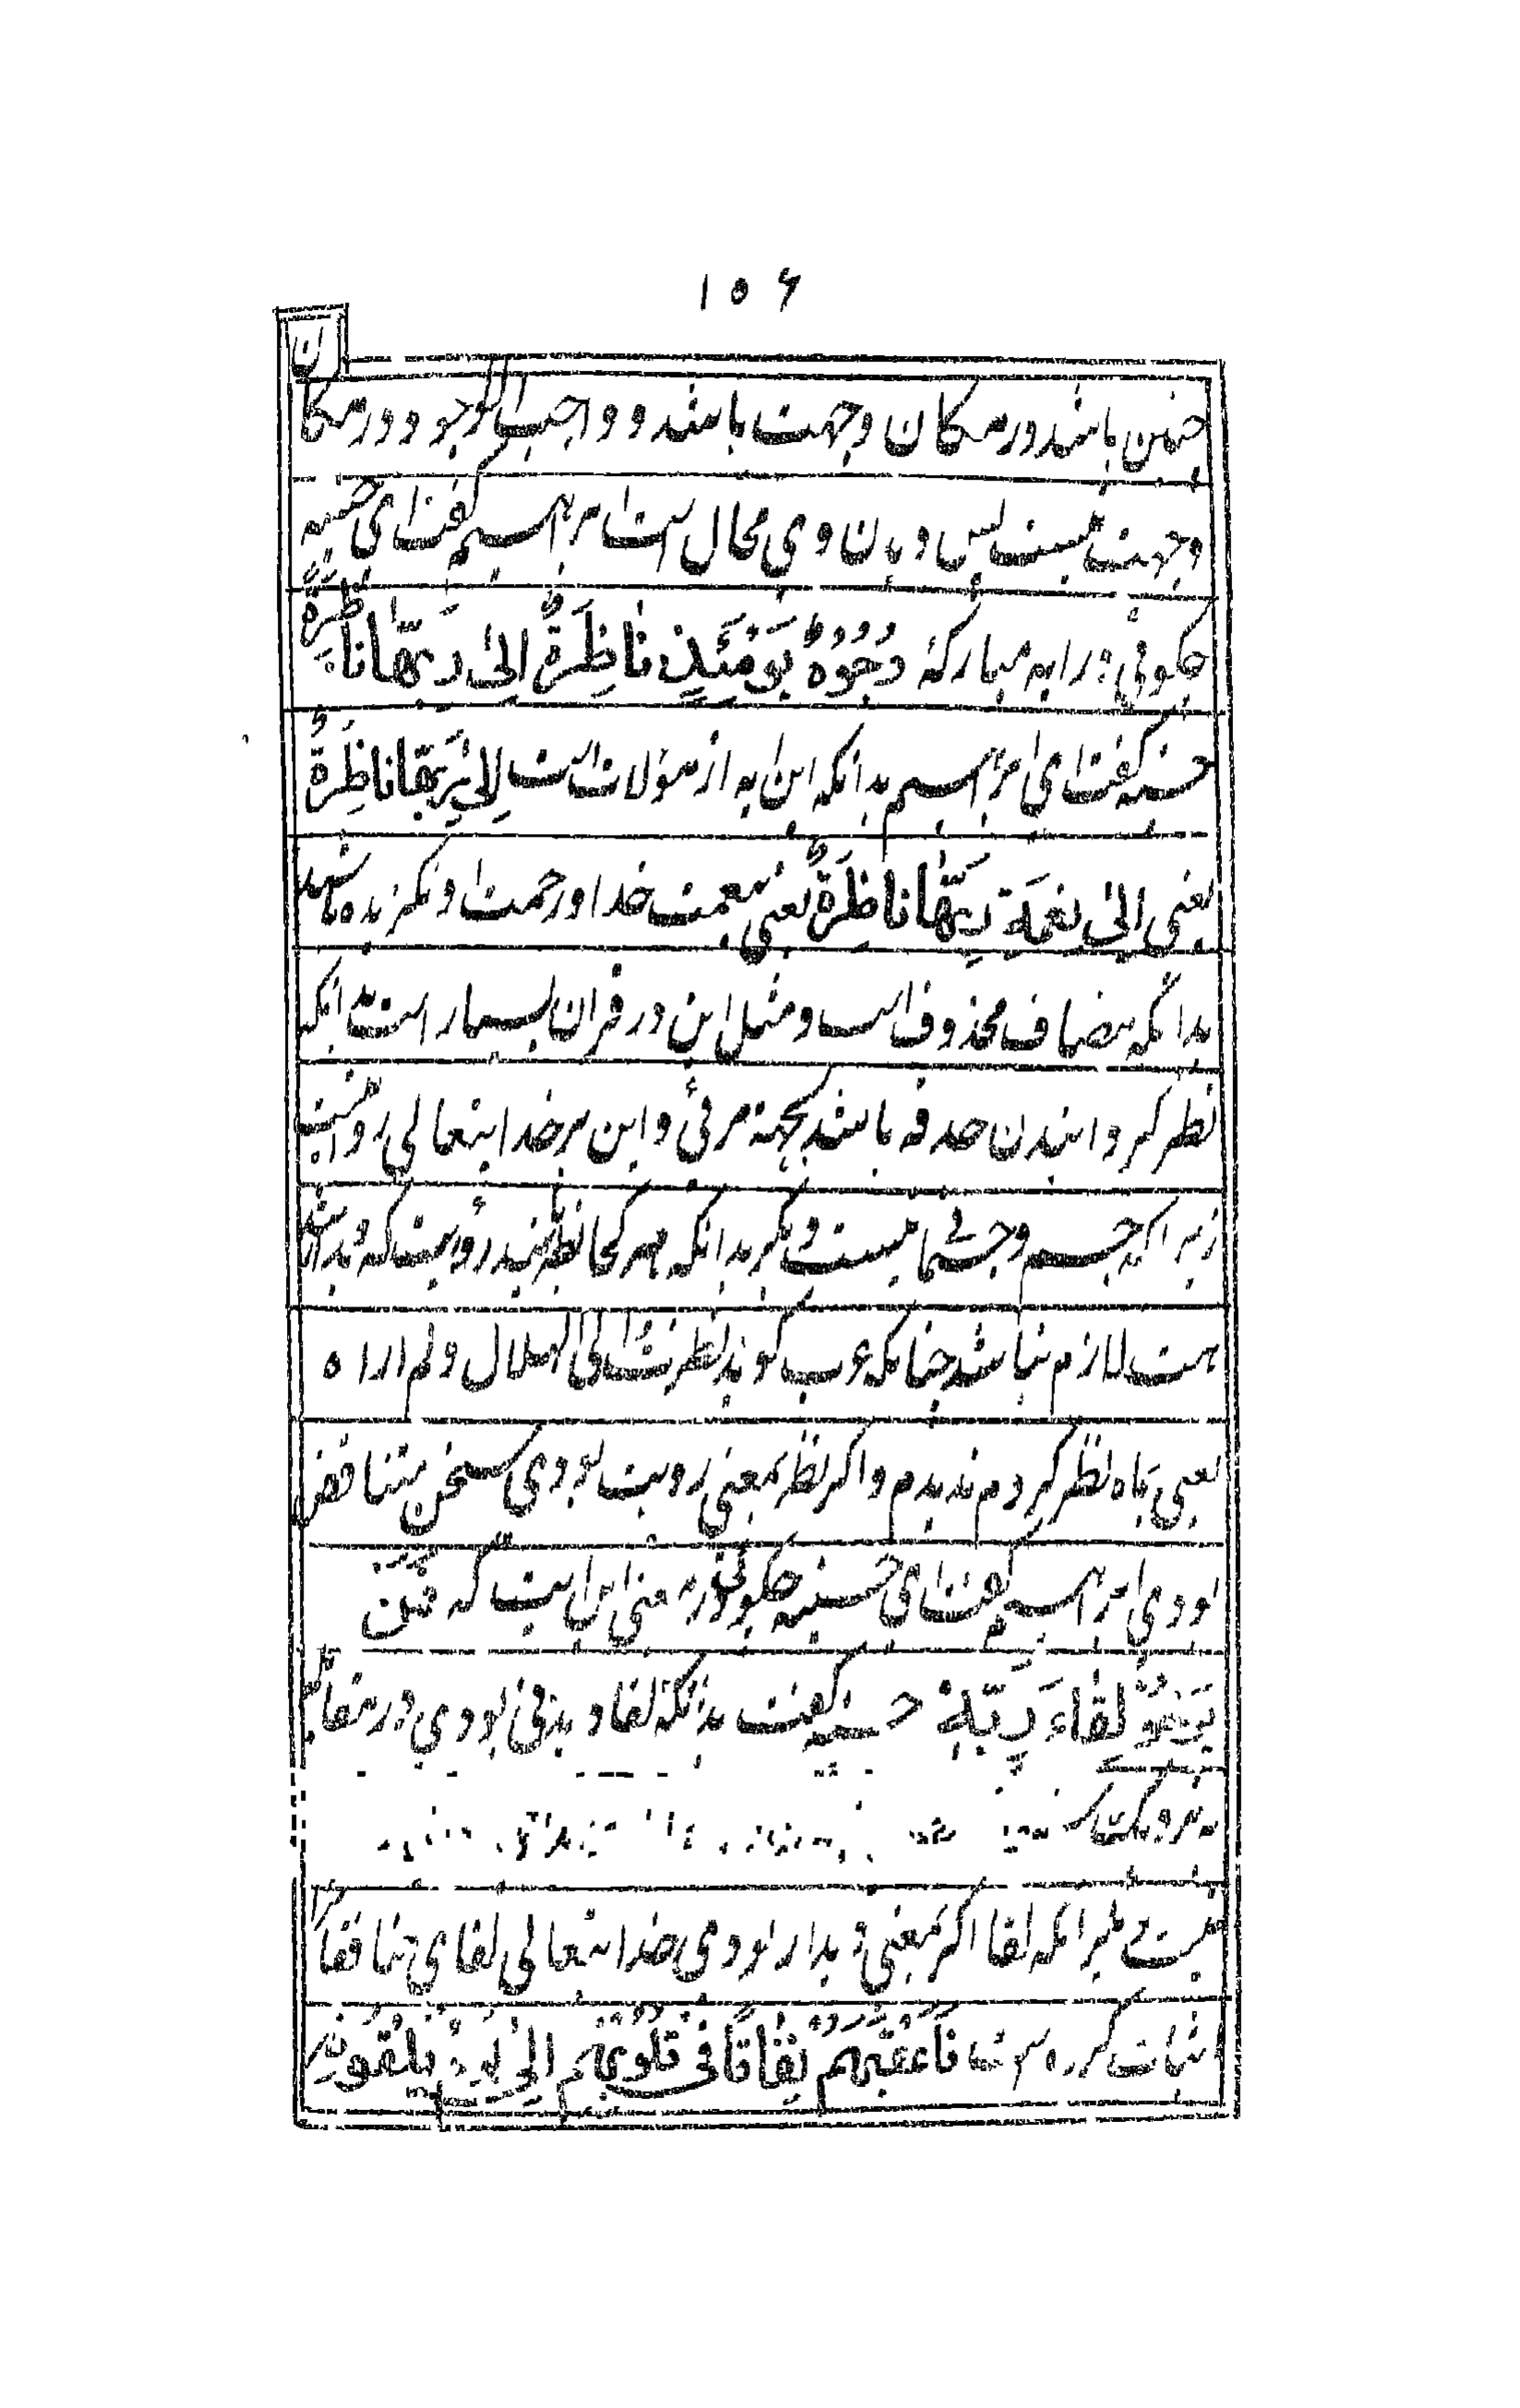 ۱۵۶
چنین باشد در مکان وجهت باشد و واجب الوجود در مکان
وجهت نیست پس دیدن وی محال است ابراهیم گفت ای حسنیه
چکوئی در ایه مبارکهٔ وُجُوْهٌ یَوْمَئِذٍ نَاظِرَةٌ اِلیٰ رَبِّهَا نَاظِرَةٌ
حسنیه گفت ای ابراهیم بدانکه این ایه از مؤلات است لِاَیِّ رَبِّهَا نَاظِرَةٌ
یعنی اِلیٰ نِعْمَةِ رَبِّهَا نَاظِرَةٌ یعنی بنعمت خدا و رحمت او نکرنده باشند
بدانکه مضاف محذوف است و مثل این در قران بسیار است بدانکه
نظر کردانیدن حدقه باشد بجهة مرئی و این بر خدایتعالی روا نیست
زیرا که جسم و جسمانیست و دیکر بدانکه هر کجا نظر روایت که
هست لازم نباشد چنانکه عرب کویند نظرتُ الی الهلال ولم اراه
یعنی بماه نظر کردم ندیدم واکر نظر بمعنی رویت بودی سخن متناقض
بودی ابراهیم گفت ای حسنیه چکوئی در معنی این ایت که فَمَنْ
یَرْجُوْ لِقَاءَ رَبِّهِ حسنیه گفت بدانکه لقا دیدنی بودی در مقابل
نیست دیکر انکه لقا اکر بمعنی دیدار بودی خدایتعالی لقای منافقان
اثبات کرده است فَاَعْقَبَهُمْ نِفَاقًا فِیْ قُلُوْبِهِمْ اِلیٰ یَوْمِ یَلْقَوْنَهُ